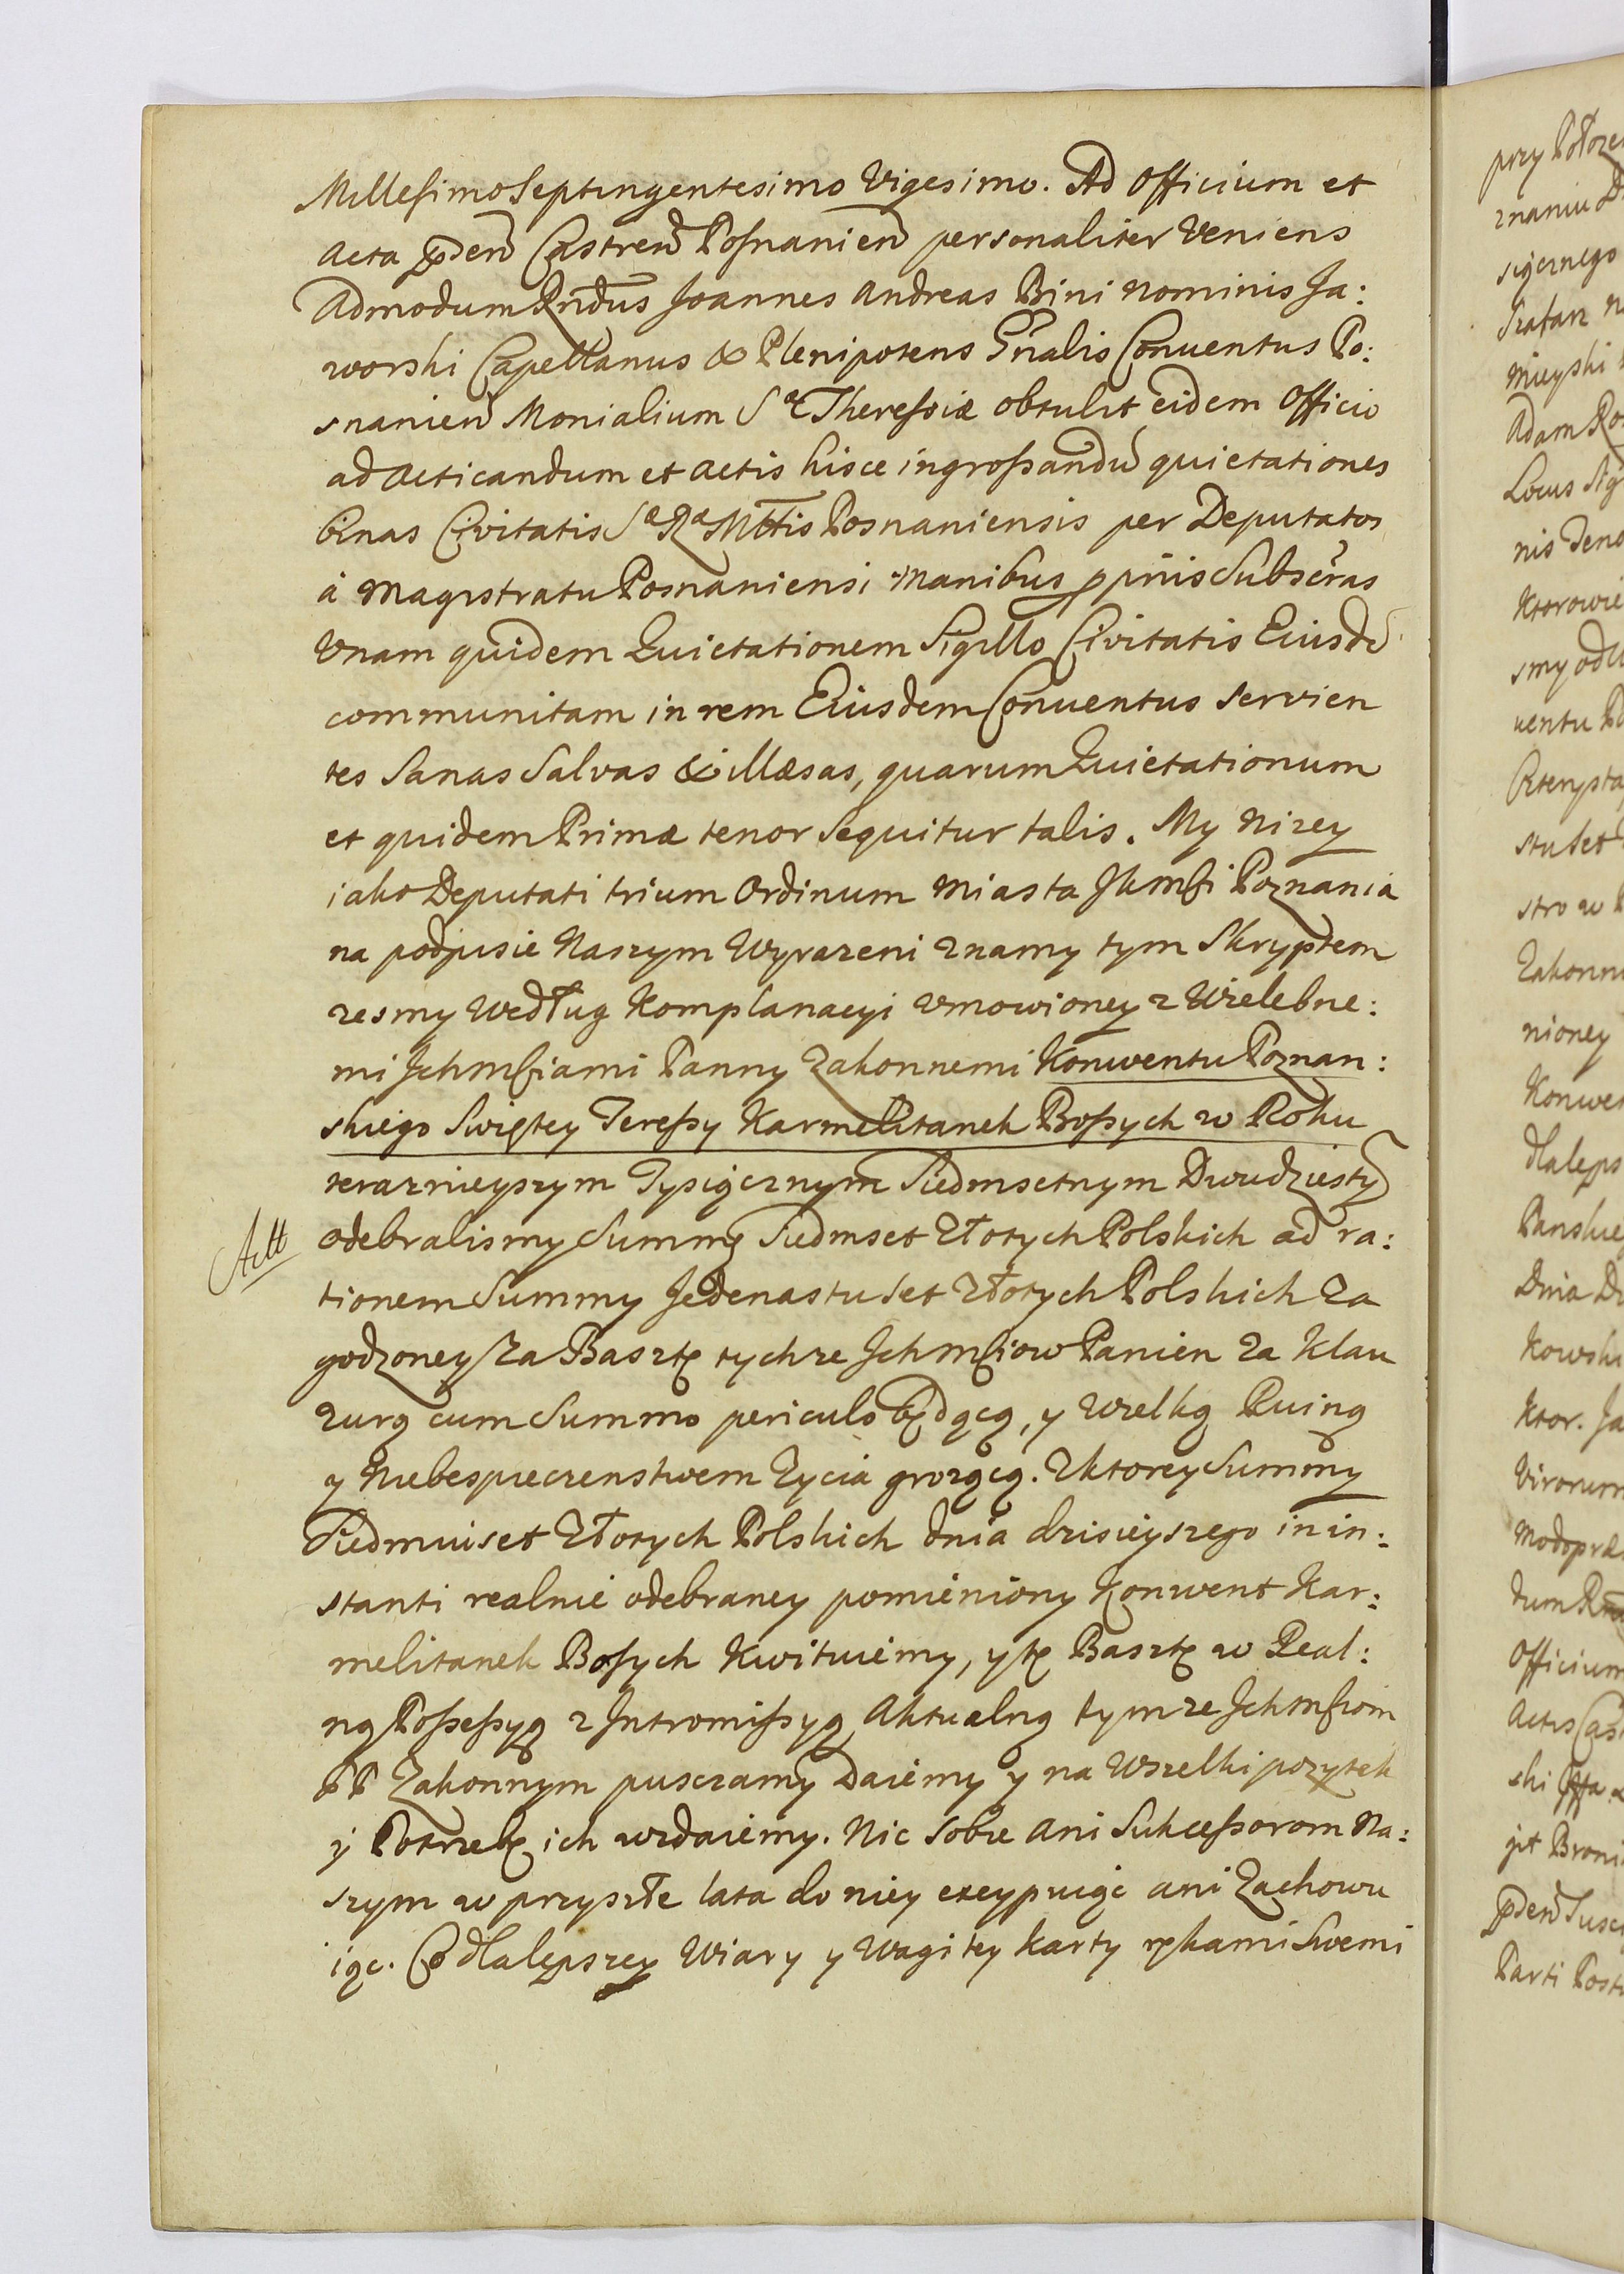 Millesimo Septingentesimo Vigesimo. Ad Officium et
Acta pñden̄ Castren̄ Posnanien̄ personaliter Veniens
Admodum Rndūs Joannes Andreas Bini nominis Ja:
worski Capellanus & Plenipotens Gñalis Conuentus Po:
snanien̄ Monialium Sæ Theressiæ obtulit eidem Officio
ad Acticandum et Actis hisce ingrossandū quietationes
binas Civitatis Sæ Ræ Mttis Posnaniensis per Deputatos
à Magistratu Posnaniensi Manibus ppriis Subscr̃as
Vnam quidem Quietationem Sigillo Civitatis Eiusdē
communitam in rem Eiusdem Conuentus Servien
tes Sanas Salvas & illæsas, quarum Quietationum
et quidem Primæ tenor Sequitur talis. My nizey
iako Deputati trium Ordinum Miasta JKMści Poznania
na podpisie Naszym Wyrazeni znamy tym Skryptem
zesmy Według Komplanacyi Vmowioney z Wielebne:
mi Jchmściami Panny Zakonnemi Konwentu Poznan:
skiego Swiętey Teressy Karmelitanek Bossych w Roku
teraznieyszym Tysiącznym Siedmsetnym Dwudziestỹ
Actt
odebralismy Summę Siedmset Złotych Polskich ad ra:
tionem Summy Jedenastu Set Złotych Polskich Za
godzoney Za Basztę tychze Jchmściow Panien Za Klau
zurą cum Summo periculo będącą, y Wielką Ruiną
y Niebespieczenstwem Zycia grozącą. Zktorey Summy
Siedmiuset Złotych Polskich dnia dzisieyszego in in:
stanti realnie odebraney pomieniony Konwent Kar:
melitanek Bosych Kwituiemy, y tę Basztę w Real:
ną Possessyą z Intromissyą Aktualną tymze Jchmściom
PP Zakonnym puszczamy Daiemy y na Wszelki pozytek
y Potrzebę ich wzdaiemy. Nic Sobie ani Sukcessorom Na:
szym w przyszłe lata do niey excypuiąc ani Zachowu
iąc. Co dla lepszey Wiary y Wagi tey karty rękami Swemi